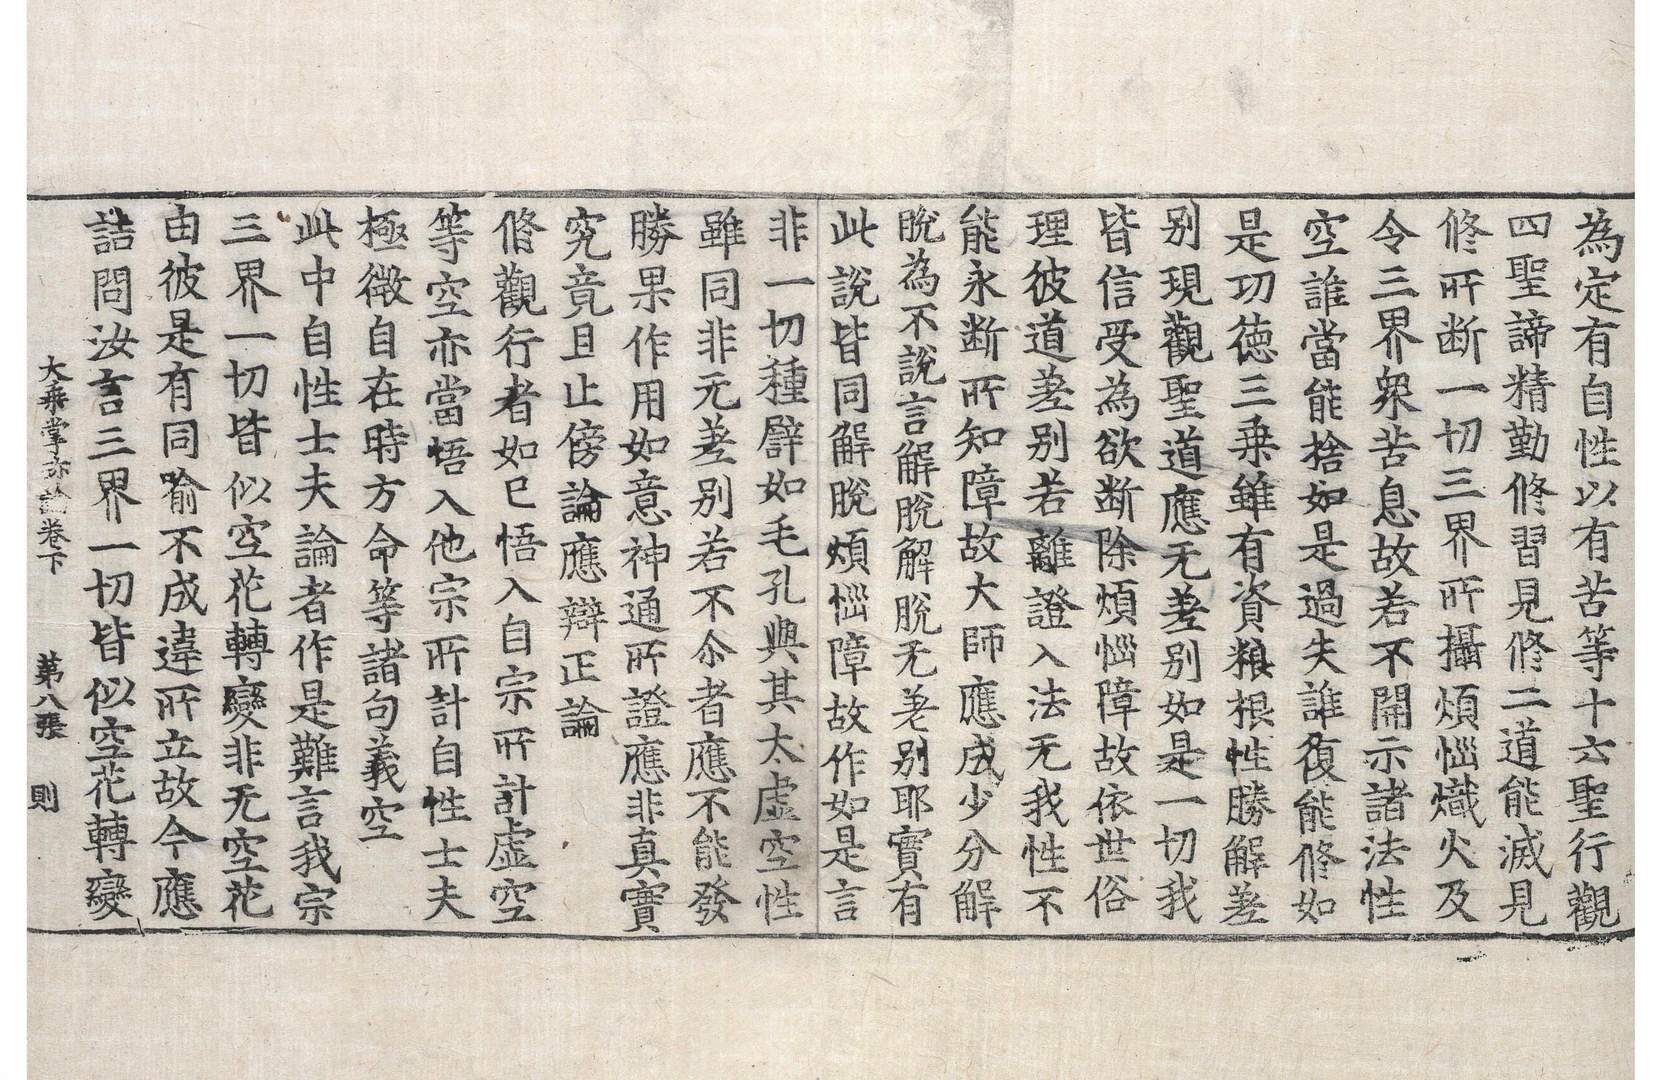 為定有自性以有苦等十六聖行觀
四聖諦精勤修習見修二道能滅見
修所斷一切三界所攝煩惱熾火及
令三界衆苦息故若不開示諸法性
空誰當能捨如是過失誰復能修如
是功德三乗雖有資糧根性勝解差
別現觀聖道應无差別如是一切我
皆信受為欲斷除煩惱障故依世俗
理彼道差別若離證入法无我性不
能永斷所知障故大師應成少分解
脫為不說言解脫解脫无差別耶實有
此說皆同解脫煩惱障故作如是言
非一切種譬如毛孔與其太虛空性
雖同非无差別若不尒者應不能發
勝果作用如意神通所證應非真實
究竟且止傍論應辯正論
脩觀行者如已悟入自宗所計虛空
等空亦當悟入他宗所計自性士夫
極微自在時方命等諸句義空
此中自性士夫論者作是難言我宗
三界一切皆似空花轉變非无空花
由彼是有同喻不成違所立故今應
詰問汝言三界一切皆似空花轉變
大乗掌珎論卷下 第八張 則